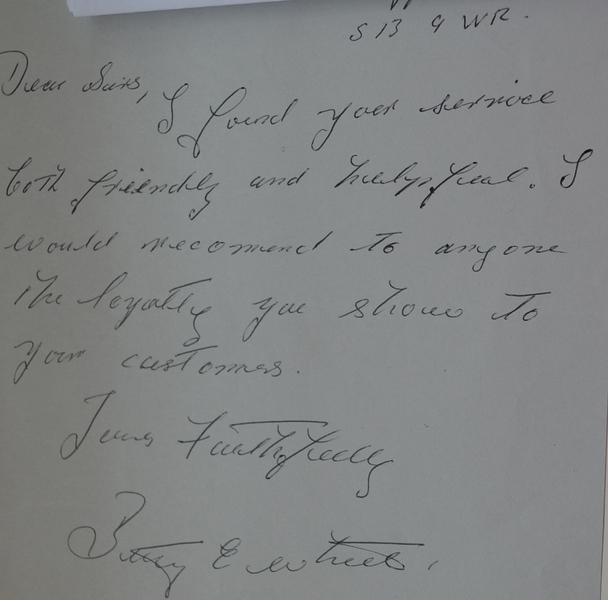 S13 9WR.
Dear Sirs,
I found your service
both friendly and helpfull. I
would recomend to anyone
the loyalty you show to
your customers.
Yours Faithfully
Betty E